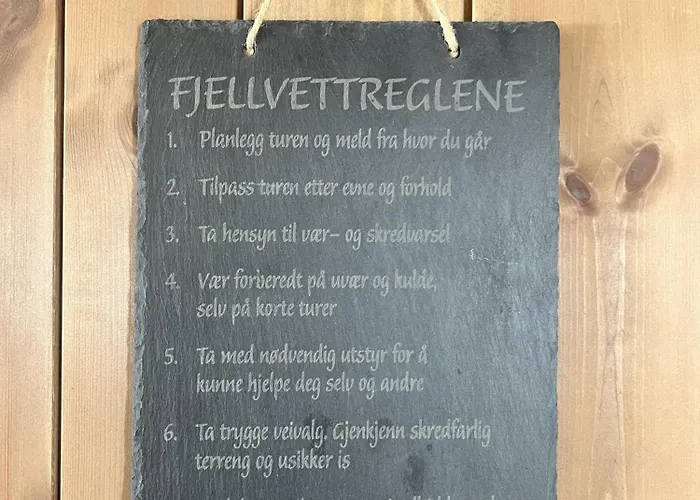 FJELLVETTREGLENE
1. Planlegg turen og meld fra hvor du går
2. Tilpass turen etter evne og forhold
3. Ta hensyn til vær– og skredvarsel
4. Vær forberedt på uvær og kulde,
selv på korte turer
5. Ta med nødvendig utstyr for å
kunne hjelpe deg selv og andre
6. Ta trygge veivalg. Gjenkjenn skredfarlig
terreng og usikker is